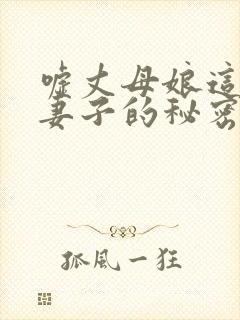 噓丈母娘這
妻子的秘密
孤風一狂